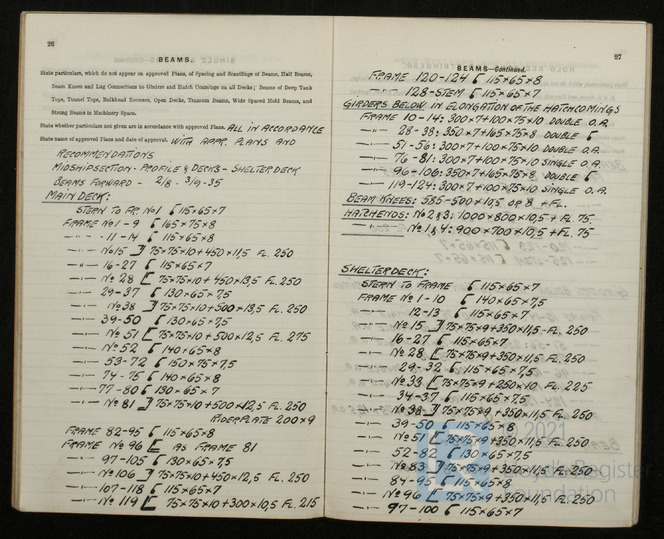 26
BEAMS.
State particulars, which do not appear on approved Plans, of Spacing and Scantlings of Beams, Half Beams,
Beam Knees and Lug Connections to Girders and Hatch Comings on all Decks; Beams of Deep Tank
Tops, Tunnel Tops, Bulkhead Recesses, Open Decks, Transom Beams, Wide Spaced Hold Beams, and
Strong Beams in Machinery Space.
State whether particulars not given are in accordance with approved Plans. ALL IN ACCORDANCE
State name of approved Plans and date of approval. WITH APPR. PLANS AND
RECOMMENDATIONS
MIDSHIPSECTION - PROFILE & DECKS - SHELTERDECK
BEAMS FORWARD - 2/8 - 3/9-35
MAIN DECK:
STERN TO FR. No 1 [ 115×65×7
FRAME No 1 - 9 [ 165×75×8
-"- - 11 - 14 [ 115×65×8
-"- No 15 ] 75×75×10 + 450×11,5 FL. 250
-"- 16-27 [ 115×65×7
-"- No 28 [ 75×75×10 + 450×13,5 FL. 250
-"- 29-37 [ 130×65×7,5
-"- No 38 ] 75×75×10 + 500×13,5 FL. 250
-"- 39-50 [ 130×65×7,5
-"- No 51 [ 75×75×10 + 500×12,5 FL. 275
-"- No 52 [ 140×65×8
-"- 53-72 [ 150×75×7,5
-"- 74-75 [ 140×65×8
-"- 77-80 [ 130×65×7
-"- No 81 ] 75×75×10 + 500×12,5 FL. 250
RIDERPLATE 200×9
FRAME 82-95 [ 115×65×8
FRAME No 96 [ AS FRAME 81
-"- 97-105 [ 130×65×7,5
-"- No 106 ] 75×75×10 + 450×12,5 FL. 250
-"- 107-118 [ 115×65×7
-"- No 119 [ 75×75×10 + 300×10,5 FL. 215
27
BEAMS—Continued.
FRAME 120-124 [ 115×65×8
-"- 128-STEM [ 115×65×7
GIRDERS BELOW IN ELONGATION OF THE HATCHCOMINGS
FRAME 10-14: 300×7+100×75×10 DOUBLE O.A.
-"- 28-38: 350×7+165×75×8 DOUBLE [
-"- 51-56: 300×7+100×75×10 DOUBLE O.A.
-"- 76-81: 300×7+100×75×10 SINGLE O.A.
-"- 96-106: 350×7+165×75×8 DOUBLE [
-"- 119-124: 300×7+100×75×10 SINGLE O.A.
BEAM KNEES: 585-500×10,5 OR 8 + FL.
HATCHENDS: No 2&3: 1000×800×10,5 + FL. 75
-"- No 1&4: 900×700×10,5 + FL. 75
SHELTERDECK:
STERN TO FRAME [ 115×65×7
FRAME No 1-10 [ 140×65×7,5
-"- 12-13 [ 115×65×7
-"- No 15 ] 75×75×9+350×11,5 FL. 250
-"- 16-27 [ 115×65×7
-"- No 28 [ 75×75×9+350×11,5 FL. 250
-"- 29-32 [ 115×65×7,5
-"- No 33 [ 75×75×9+250×10 FL. 225
-"- 34-37 [ 115×65×7,5
-"- No 38 ] 75×75×9+350×11,5 FL. 250
-"- 39-50 [ 115×65×8
-"- No 51 [ 75×75×9+350×11,5 FL. 250
-"- 52-82 [ 130×65×7,5
-"- No 83 ] 75×75×9+350×11,5 FL. 250
-"- 84-95 [ 115×65×8
-"- No 96 [ 75×75×9+350×11,5 FL. 250
-"- 97-100 [ 115×65×7
2021
Lloyd's Register
Foundation